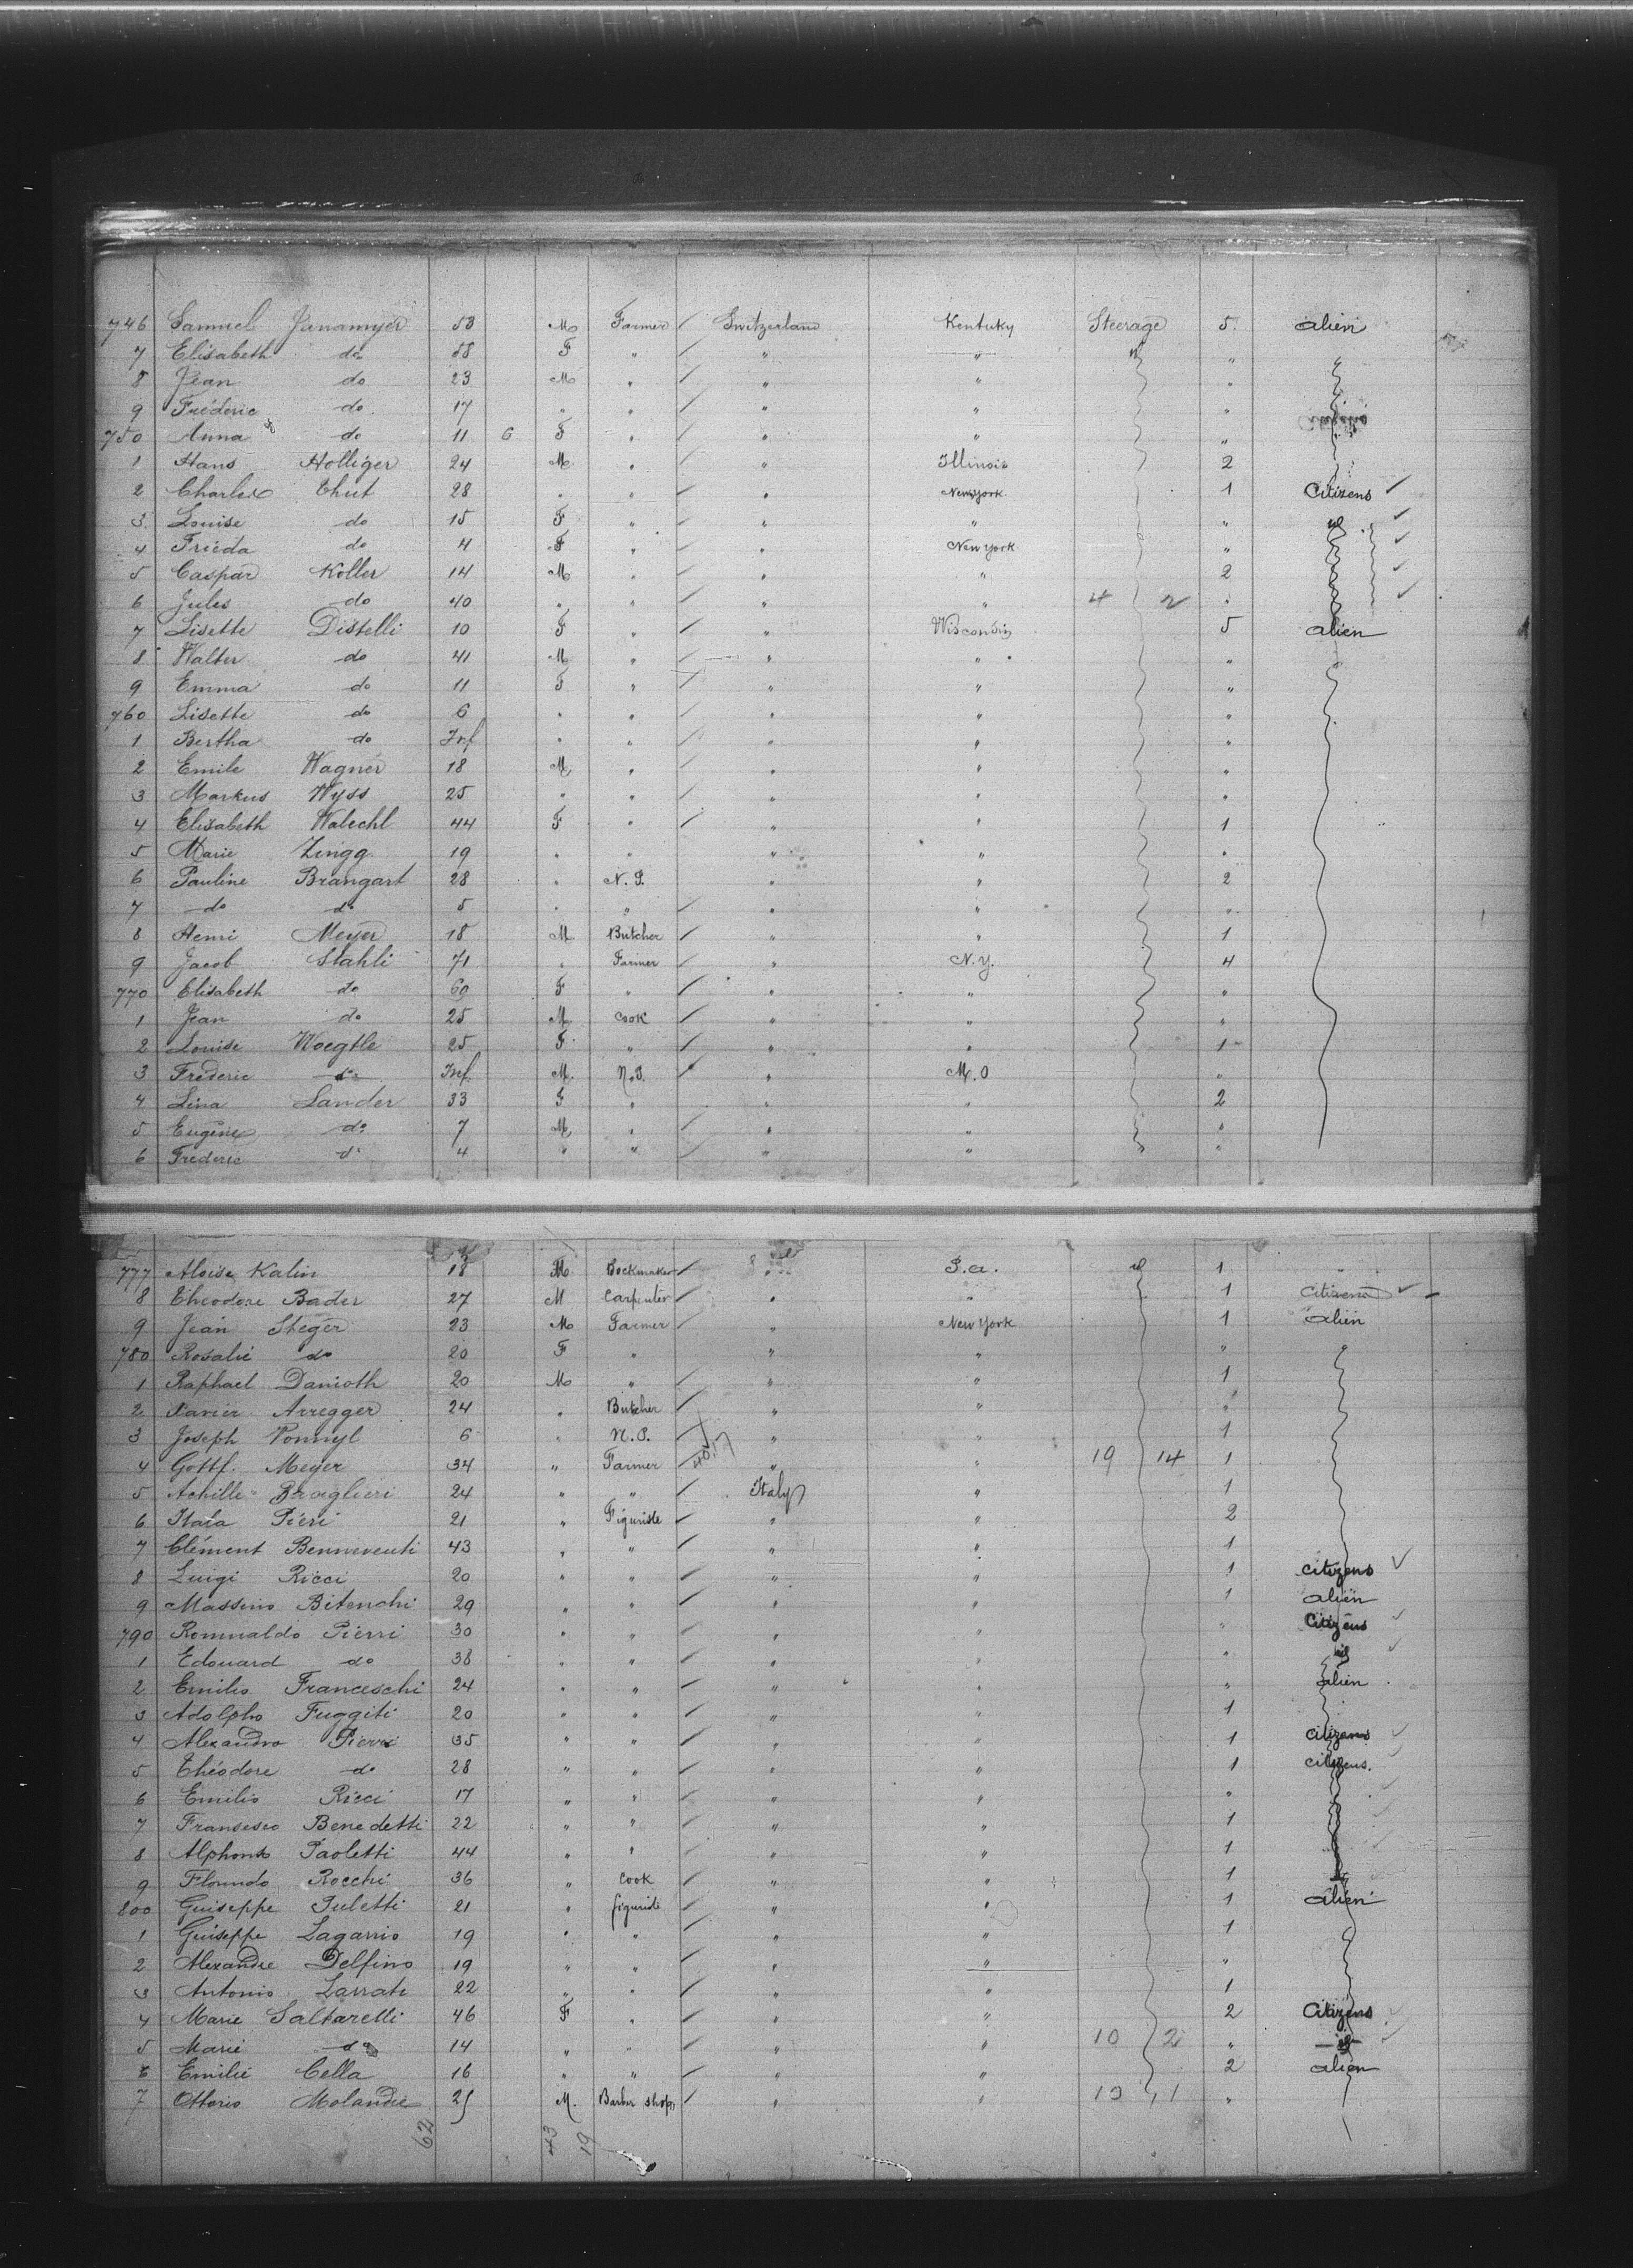 746 Samuel 53 M Farmer / Switzerland Kentuky Steerage 5 alien
7 Elisabeth do 58 F " / " " " "
8 Jean do 23 M " / " " "
9 Fréderic do 17 " " / " " "
750 Anna do 11 6 F " / " " "
1 Hans Holliger 24 M " / " Illinois 2
2 Charles Thut 28 " " / " New York 1 Citizens ✓
3 Louise do 15 F " / " " " ✓
4 Frieda do 4 F " / " New York " ✓
5 Caspar Koller 14 M " / " " 2 ✓
6 Jules do 40 " " / " " 4 2 " ✓
7 Lisette Distelli 10 F " / " Wisconsin 5 alien
8 Walter do 41 M " / " " "
9 Emma do 11 F " / " " "
760 Lisette do 6 " " / " " "
1 Bertha do Inf " " / " " "
2 Emile Wagner 18 M " / " " "
3 Markus Wyss 25 " " / " " "
4 Elisabeth 44 F " / " " 1
5 Marie Zingg 19 " " " " "
6 Pauline Brangart 28 " N. P. " " 2
7 do do 5 " " / " " "
8 Henri Meyer 18 M Butcher / " " 1
9 Jacob Stahli 71 " Farmer / " N.Y. 4
770 Elisabeth do 69 F " / " " "
1 Jean do 25 M Cook / " " "
2 Louise Woegtle 25 F " / " " 1
3 Frederic do Inf M. N.P. / " M.O "
4 Lina Lander 33 F " / " " 2
5 Eugène do 7 M " / " " "
6 Frederic do 4 " " / " " "
777 Aloise Kalin 18 M / " P.a. 1 "
8 Theodore Bader 27 M Carpenter / " " 1 Citizens ✓
9 Jean Steger 23 M Farmer / " New York 1 alien
780 Rosalie do 20 F " / " " "
1 Raphael Danioth 20 M " / " " 1
2 Xavier Arregger 24 " Butcher / " " "
3 Joseph 6 " N. P. / " " 1
4 Gottf. Meyer 34 " Farmer / " " 19 14 1
5 Achille Braglieri 24 " " / Italy " 1
6 Pieri 21 " Figuriste / " " 2
7 Clément Benneventi 43 " " / " " 1
8 Luigi Ricci 20 " " / " " 1 citizens ✓
9 Massimo Bitenchi 29 " " / " " 1 alien
790 Romualdo Pierri 30 " " / " " " Citizens ✓
1 Edouard do 38 " " / " " " ✓
2 Emilio Franceschi 24 " " / " " " alien
3 Adolpho Fuggiti 20 " " / " " 1
4 Alexandro Pierri 35 " " / " " 1 citizens ✓
5 Théodore do 28 " " / " " 1 citizens. ✓
6 Emilio Ricci 17 " " / " " " ✓
7 Fransesco Benedetti 22 " " / " " 1 ✓
8 Alphonse Paoletti 44 " " / " " 1 ✓
9 Florindo Rocchi 36 " Cook / " " 1 ✓
800 Guiseppe Puletti 21 " figuriste / " " 1 alien
1 Guiseppe 19 " " / " " 1
2 Alexandre Delfino 19 " " / " " "
3 Antonio 22 " " / " " 1
4 Marie Saltarelli 46 F " / " " 2 Citizens ✓
5 Marie do 14 " " / " " 10 2 " ✓
6 Emilie Cella 16 " " / " " 2 alien
7 Ottorio Molandre 25 M. Barber shop / " " 10 1 "
62 43 19